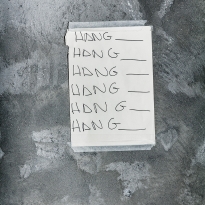 HANG___
HANG___
HANG___
HANG___
HANG___
HANG___